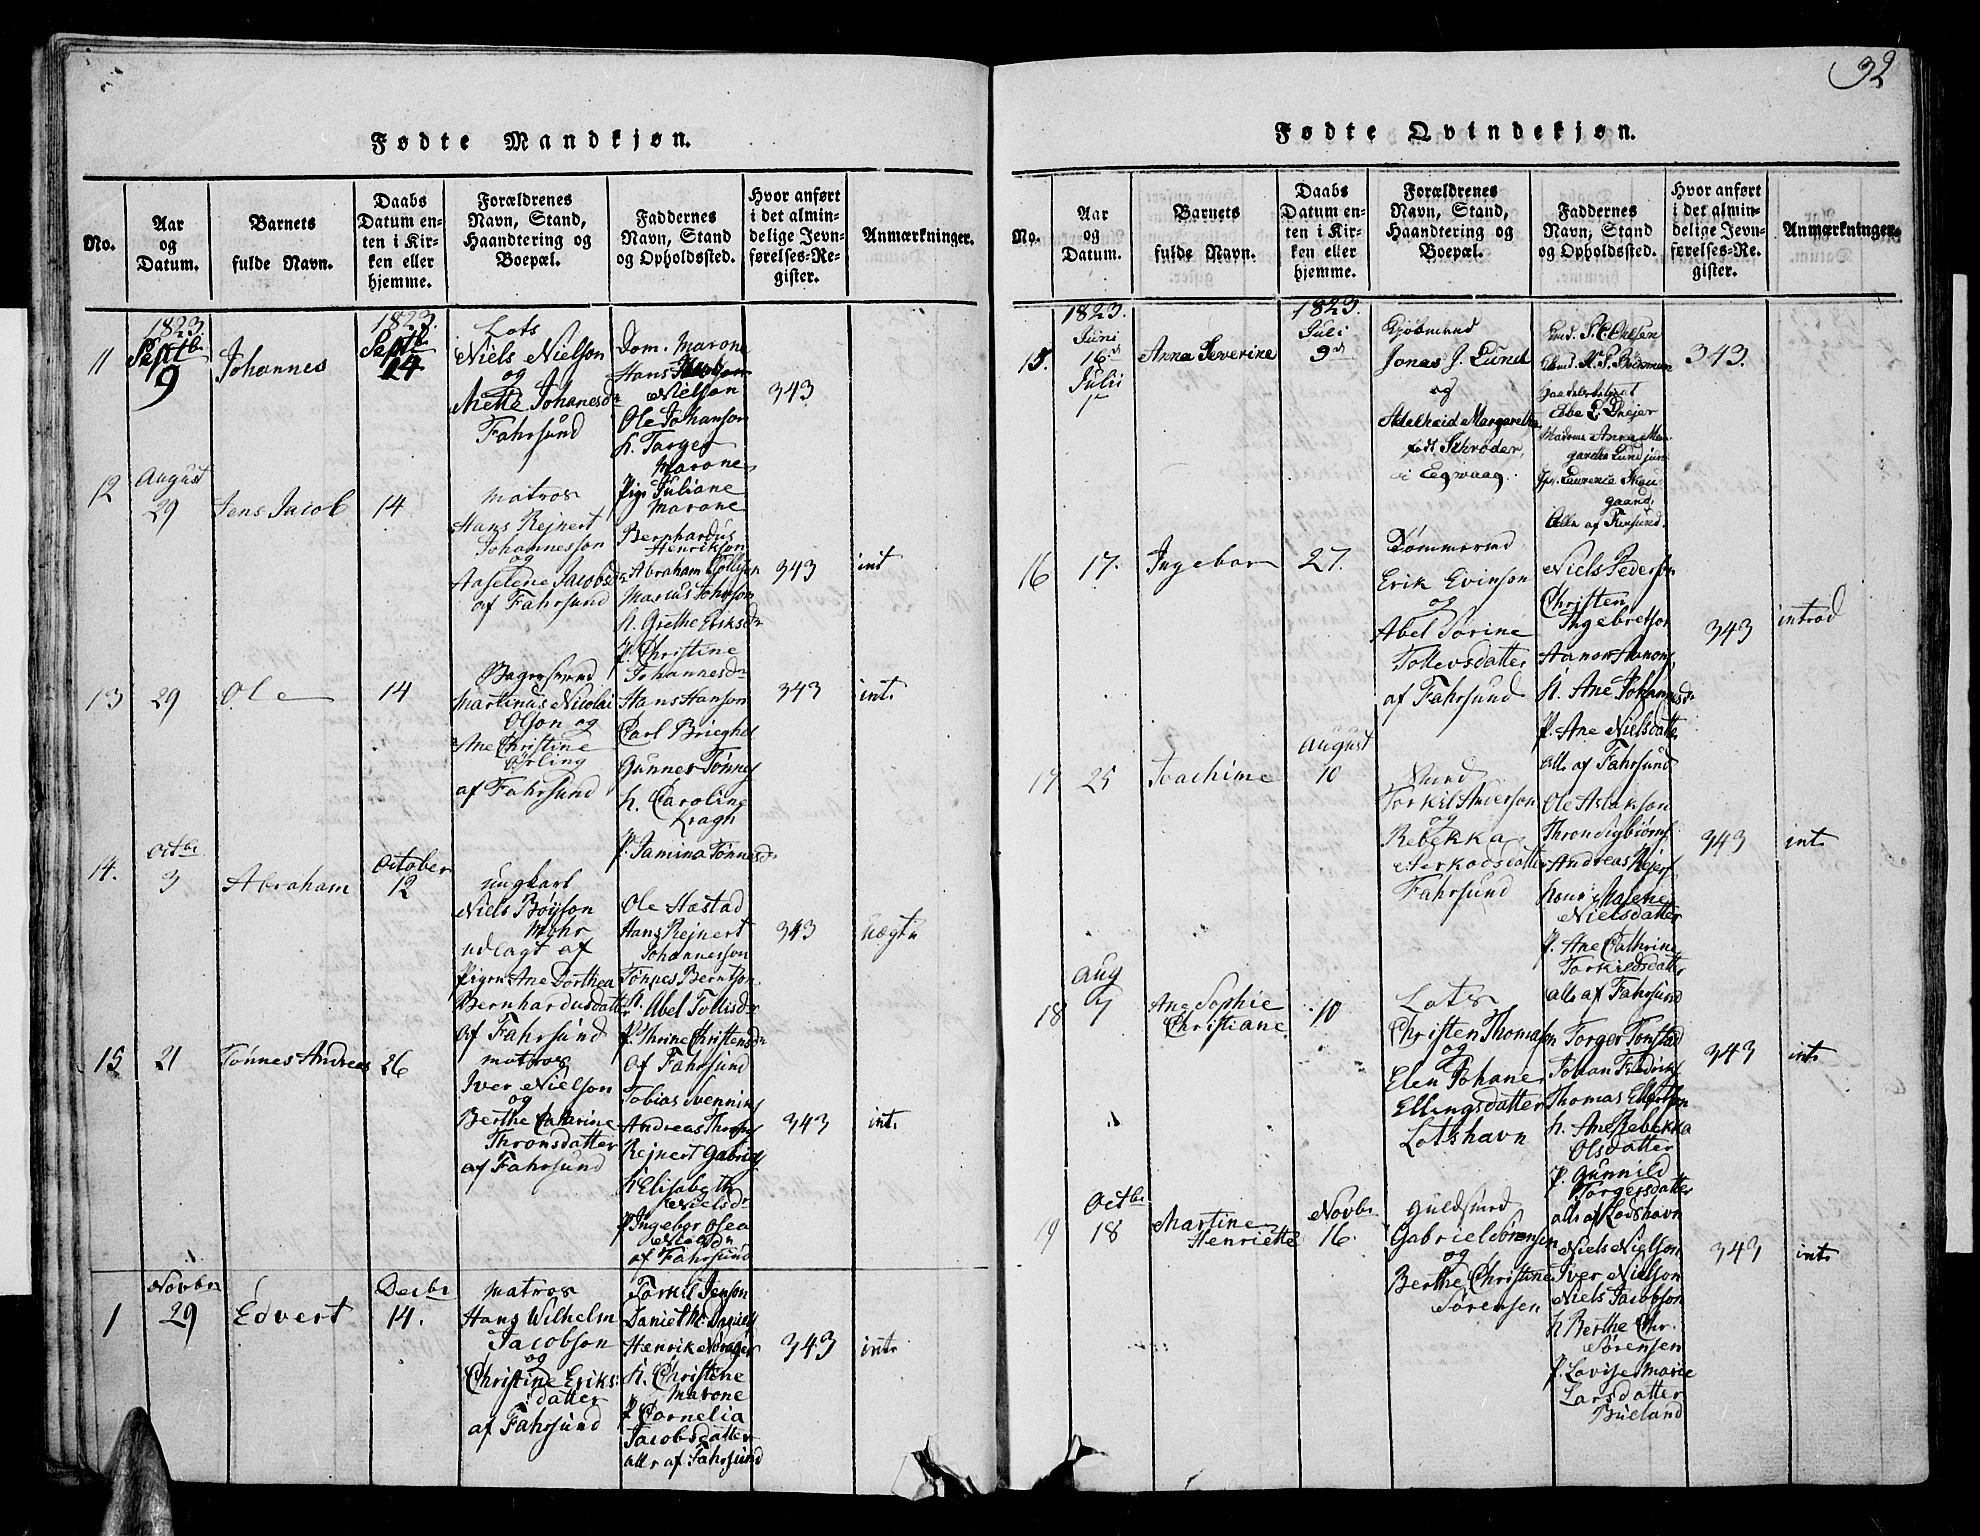 32
Fødte Mandkjøn.
No.
Aar
og
Datum.
Barnets
fulde Navn.
Daabs
Datum en-
ten i Kir-
ken eller
hjemme.
Forældrenes
Navn, Stand,
Haandtering og
Boepæl.
Faddernes
Navn, Stand
og Opholdssted.
Hvor anført
i det almin-
delige Jevn-
førelses-Re-
gister.
Anmærkninger.
11
1823.
Septbr
9
Johannes
1823.
Septbr
14
Lots
Niels Nielson
og
Mette Johanesdr
Fahrsund
Dom. Marone
Hans
Nielson
Ole Johanson
h. Targer
Marone
Pige Juliane
Marone
343
12
August
29
Jens Jacob
14
matros
Hans Rejnert
Johannesson
og
Aaselene Jacobsdr
af Fahrsund
Bernhardus
Henrikson
Abraham Tollison
Marcus Johnson
h. Grethe Eriksdr
P. Christine
Johannesdr
343
int
13
29
Ole
14
Bagersvend
Martinus Nicolai
Olson og
Ane Christine
Ørling
af Fahrsund
Hans Hanson
Carl Brieghel
Gunnes Tønnes
h. Caroline
Kragh
P. Jamina Tønnesdr
343
int.
14.
Octbr
3
Abraham
October
12
ungkarl
Niels Boyson
Mohr
udlagt af
Pigen Ane Dorthea
Bernhardusdatter
af Fahrsund
Ole Hastad
Hans Rejnert
Johannesson
Tønnes Berntson
h. Abel Tollisdr
P. Thrine Christensdr
af Fahrsund
343
uægte
15
21
Tønnes Andreas
26
matros
Iver Nielson
og
Berthe Catarine
Thronsdatter
af Fahrsund
Tobias Svennings
Andreas Throns
Rejnert Gabriels
h Elisabeth
Nielsdr
P Ingebor Olea
Nielsdr
af Fahrsund
343
int.
1
Novbr
29
Edvert
Decbr
14.
matros
Hans Wilhelm
Jacobson
og
Christine Eriks:
datter
af Fahrsund
Torkil Jenson
Daniel M. Daniels
Henrik Norager
h. Christene
Marone
P Cornelia
Jacobsdatter
alle af Fahrsund
343
int.
Fødte Qvindekjøn.
No.
Aar
og
Datum.
Barnets
fulde Navn.
Daabs
Datum en-
ten i Kir-
ken eller
hjemme.
Forældrenes
Navn, Stand,
Haandtering og
Boepæl.
Faddernes
Navn, Stand
og Opholdssted.
Hvor anført
i det almin-
delige Jevn-
førelses-Re-
gister.
Anmærkninger.
15.
1823.
Juni
16d
Julii
1ste
Anna Severine
1823.
Juli
9d
Kjøbmand
Jonas J. Lund
og
Adelheid Margaretha
født Schrøder,
i Eegvaag.
Ebbe L Dreier
Madme Anna Mar
garetha Lund
Jfr. Laurence
gaard
Alle af Farsund.
343.
16
17.
Ingebor
27.
Tømmermd
Erik Evinson
og
Abel Sørine
Tollevsdatter
af Fahrsund
Niels Pederson
Christen
Ingebretson
Aanon Aanons
h. Ane Johannesdr
P. Ane Nielsdatter
alle af Fahrsund
343
introd
17
25
Joachime
August
10
Torkil Anderson
og
Rebekka
Aerkodsdatter
Fahrsund
Ole Aslakson
Thrond Sigbiørns
Andreas Rejers
hone Malene
Nielsdatter
P. Ane Cathrine
Torkildsdatter
alle af Fahrsund
343
int.
18
Aug
7
Ane Sophie
Christiane
10
Lots
Christen Thomason
og
Elen Johane
Ellingsdatter
Lotshavn
Torger Tonstad
Johan Fredriks
Thomas Ellertson
h. Ane Rebekka
Olsdatter
P. Gunnild
Torgersdatter
alle af Lodshavn
343
int.
19
Octbr
18
Martine
Henriette
Novbr
16.
Guldsmed
Gabriel Sørensen
og
Berthe Christine
Sørensen
Niels Nielson
Iver Nielson
Niels Jacobson
h Berthe Chr.
Sørensen
P. Lovise Marie
Larsdatter
Büeland
343
int.